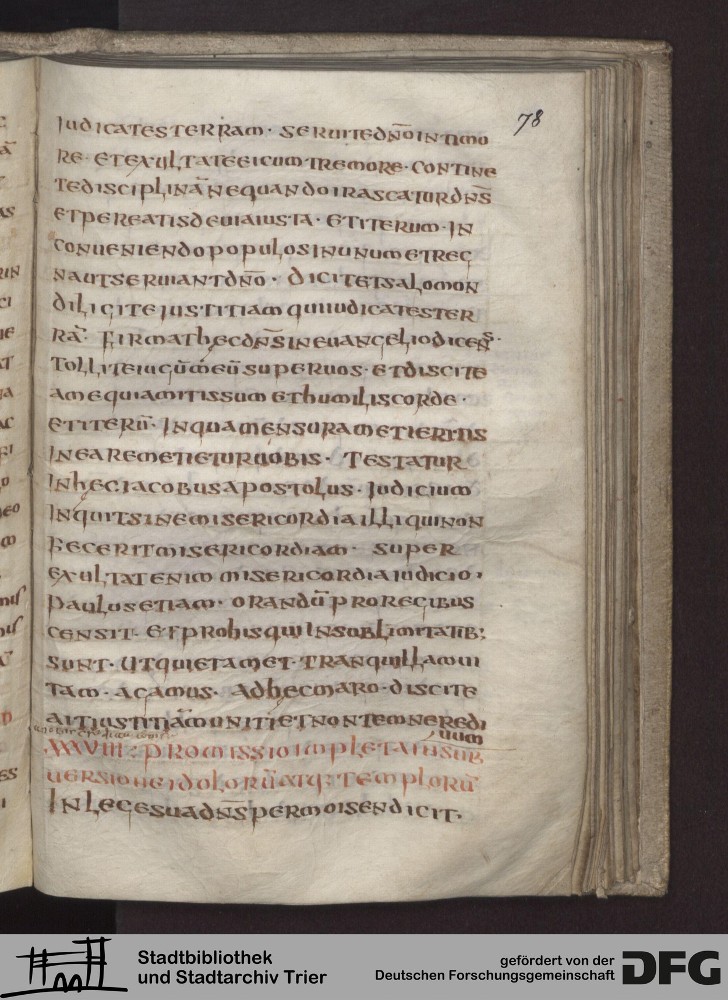 78
IUDICATESTERRAM· SERUITEDN̄OINTIMO
RE· ETEXULTATEEICUMTREMORE· CONTINE
TEDISCIPLINĀNEQUANDOIRASCATURDN̄S
ETPEREATISDEUIAIUSTA· ETITERUM· IN
CONUENIENDOPOPULOSINUNUMETREG
NAUTSERUIANTDN̄O· DICITETSALOMON
DILIGITEIUSTITIAMQUIIUDICATESTER
RĀ· FIRMATHECDN̄SINEUANGELIODICENS·
TOLLITEIUGŪMEŪSUPERUOS· ETDISCITE
AMEQUIAMITISSUMETHUMILISCORDE·
ETITERŪ· INQUAMENSURAMETIERITIS
INEAREMETIETURUOBIS· TESTATUR
INHECIACOBUSAPOSTOLUS· IUDICIUM
INQUITSINEMISERICORDIAILLIQUINON
FECERITMISERICORDIAM· SUPER
EXULTATENIMMISERICORDIAIUDICIO·
PAULUSETIAM· ORANDŪPROREGIBUS
CENSIT· ETPROHISQUIINSUBLIMITATIB;
SUNT· UTQUIETAMET· TRANQUILLAMUI
TAM· AGAMUS· ADHECMARO· DISCITE
AITIUSTITIĀMONITIETNONTEMNEREDI
UUM
XXXVIII: PROMISSIOIMPLETAINSUB
UERSIONEIDOLORŪATQ: TEMPLORŪ
INLEGESUADN̄SPERMOISENDICIT·
Stadtbibliothek
und Stadtarchiv Trier
gefördert von der
Deutschen Forschungsgemeinschaft
DFG